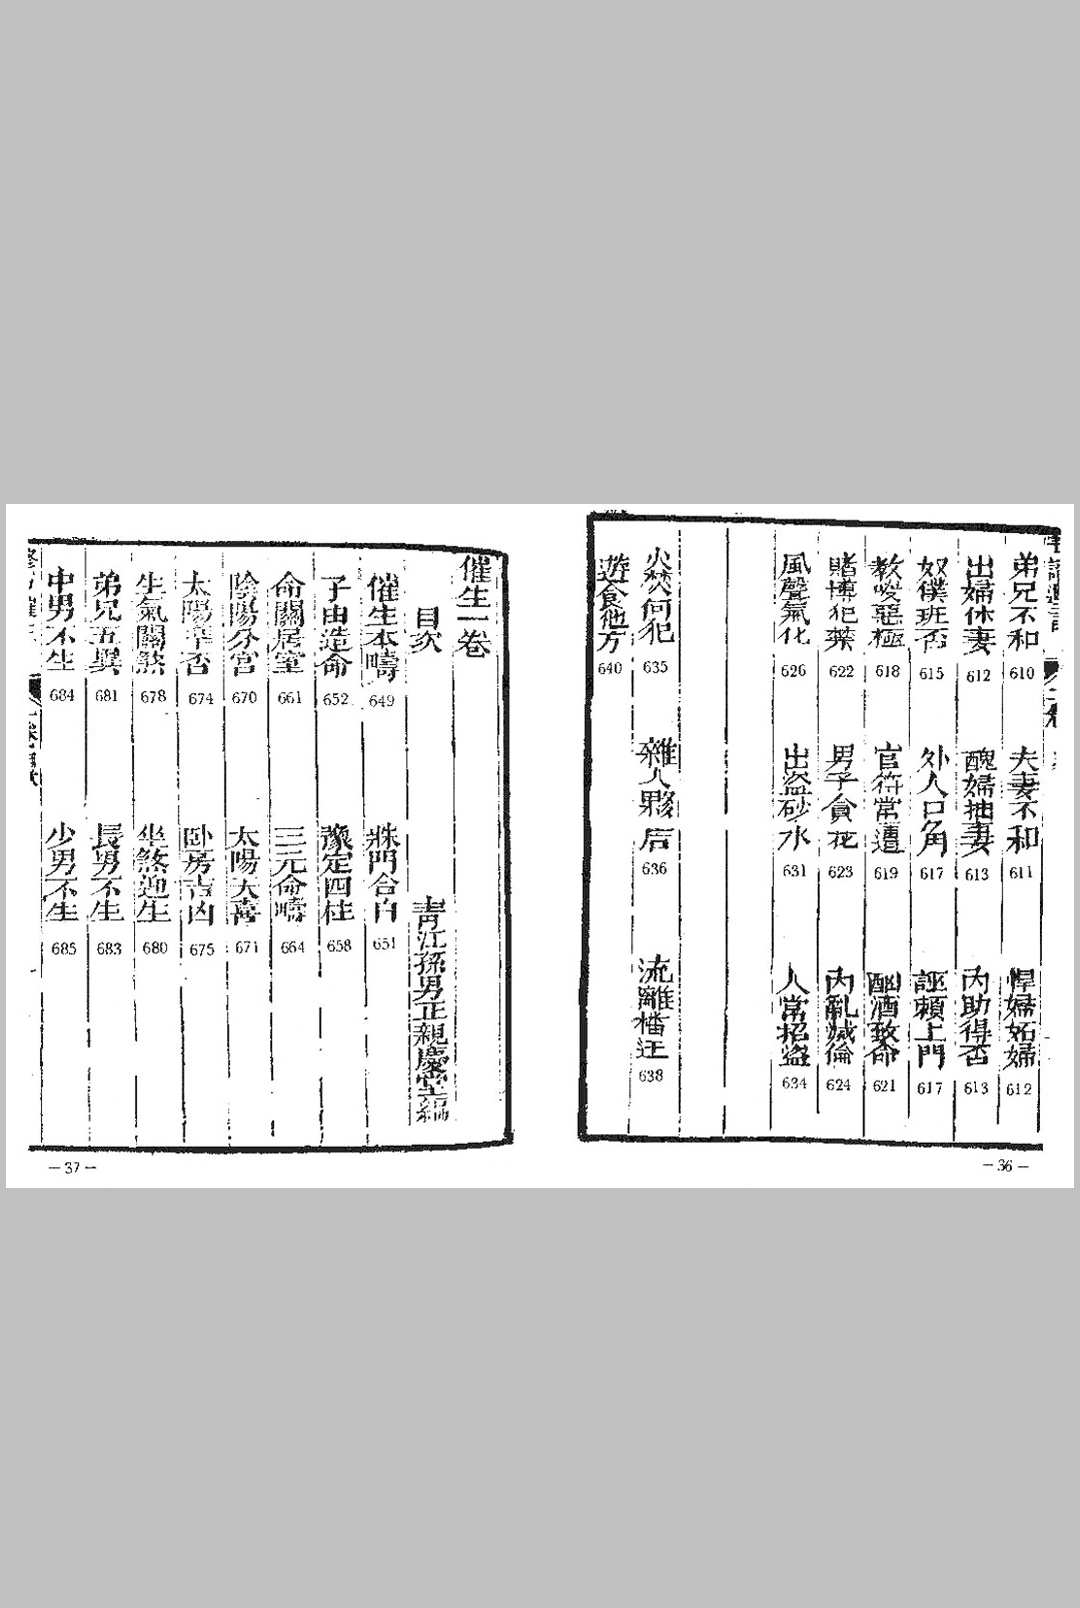 弟兄不和 610
夫妻不和 611
悍婦妬婦 612
出婦休妻 612
醜婦抽妻 613
內助得否 613
奴僕班否 615
外人口角 617
誣賴上門 617
教唆惡極 618
官符常遭 619
酗酒致命 621
賭博犯葉 622
男子貪花 623
內亂滅倫 624
風聲氣化 626
出盜砂水 631
人常招盜 634
火焚何犯 635
雜人夥店 636
流離 638
遊食他方 640
— 36 —
催生一卷
目次
青江孫男正親慶堂編
催生本疇 649
門合白 651
子由造命 652
豫定四柱 658
命關居室 661
三元命疇 664
陰陽分宮 670
太陽大喜 671
太陽宰否 674
臥房吉凶 675
生氣關煞 678
坐煞迎生 680
弟兄五巽 681
長男不生 683
中男不生 684
少男不生 685
— 37 —